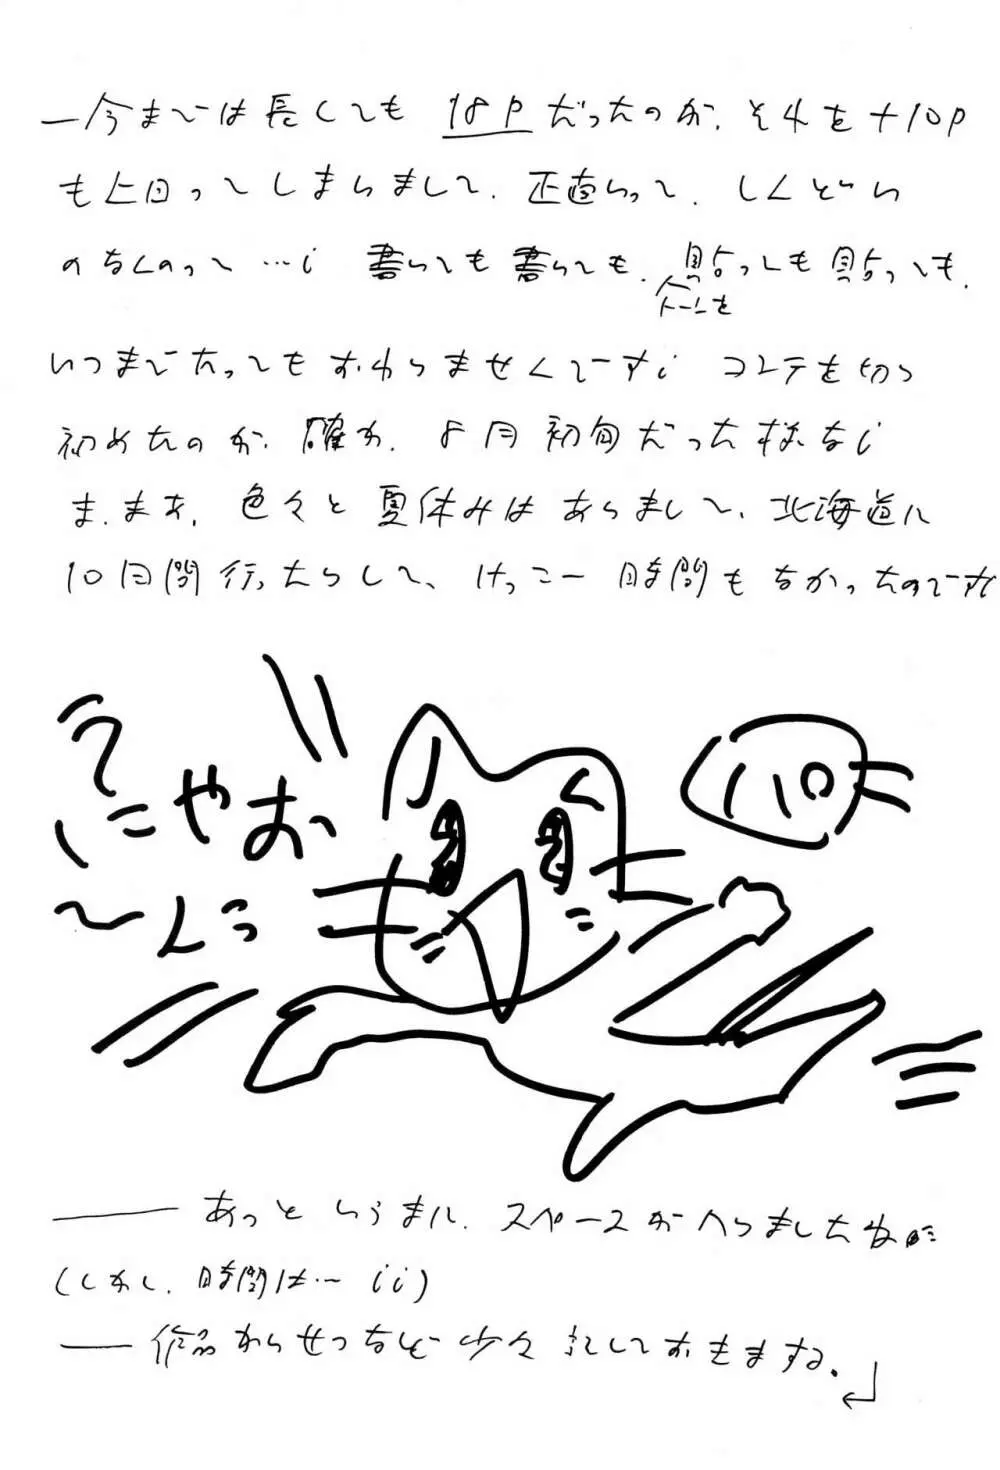 ―今までは長くても 18Pだったのが、それを+10P
も上回ってしまいまして、正直いって、しんどい
のなんのって…! 書いても書いても、貼っても貼っても、
トーンを
いつまでたってもおわりませんです! コンテを切り
初めたのが、確か、8月初旬だった様なし
ま、まあ、色々と夏休みはありまして、北海道に
10日間行ったりして、けっこー時間もなかったのです
にゃお
〜んっ
―― あっというまに、スペースがへりましたね
(しかし、時間は… !!)
― 作品かいせつなど少々記しておきまする。